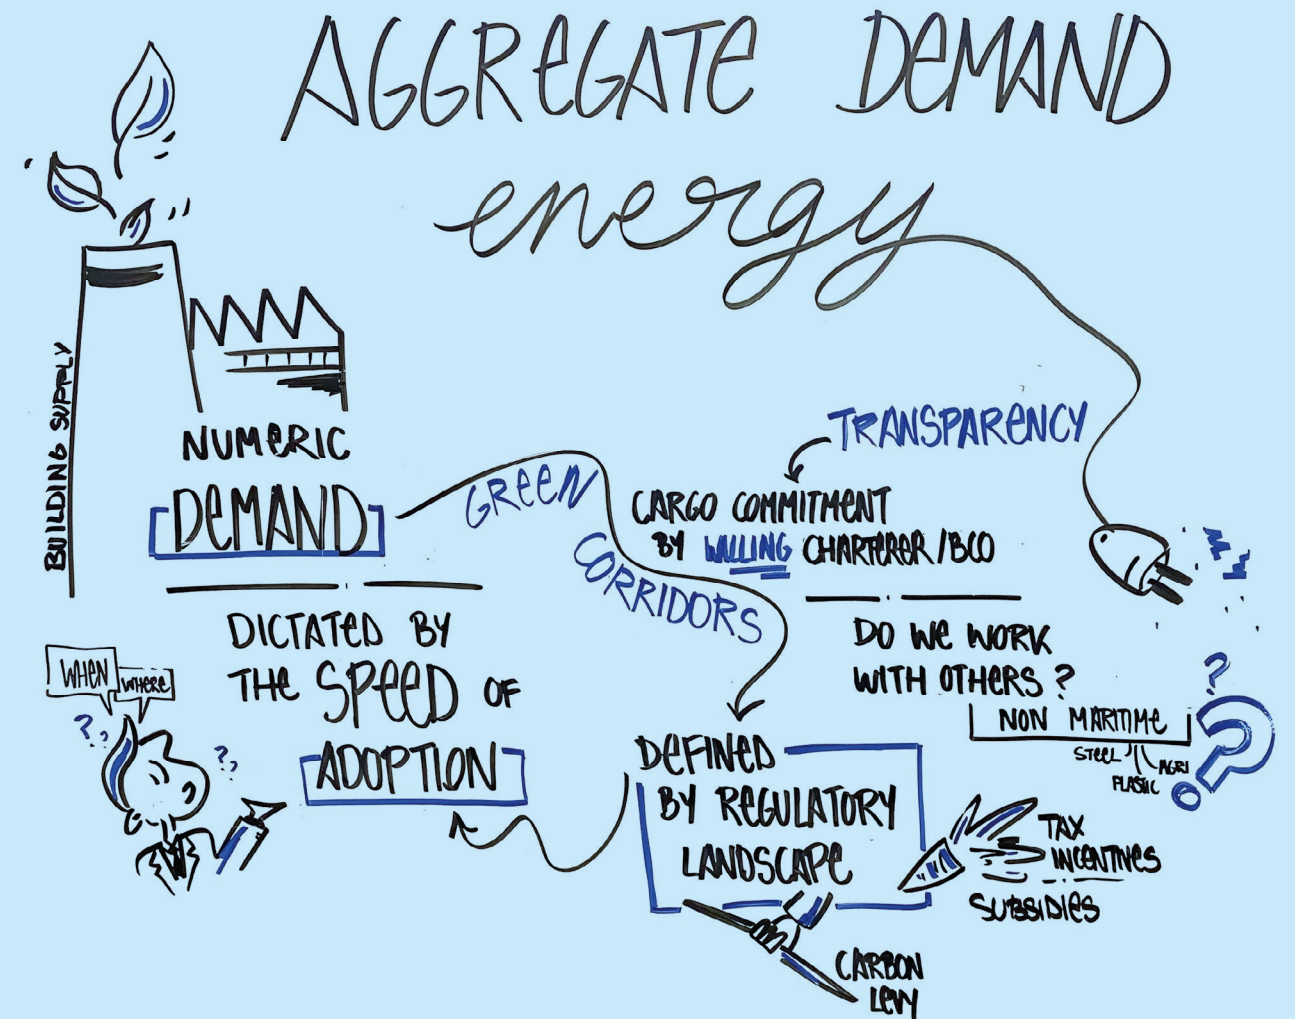 AGGREGATE DEMAND
energy
BUILDING SUPPLY
NUMERIC
DEMAND
DICTATED BY
THE SPEED OF
ADOPTION
WHEN
WHERE
??
??
GREEN
CORRIDORS
TRANSPARENCY
CARGO COMMITMENT
BY WILLING CHARTERER/BCO
DO WE WORK
WITH OTHERS?
NON MARITIME
STEEL
AGRI
PLASTIC
?
?
DEFINED
BY REGULATORY
LANDSCAPE
TAX
INCENTIVES
SUBSIDIES
CARBON
LEVY